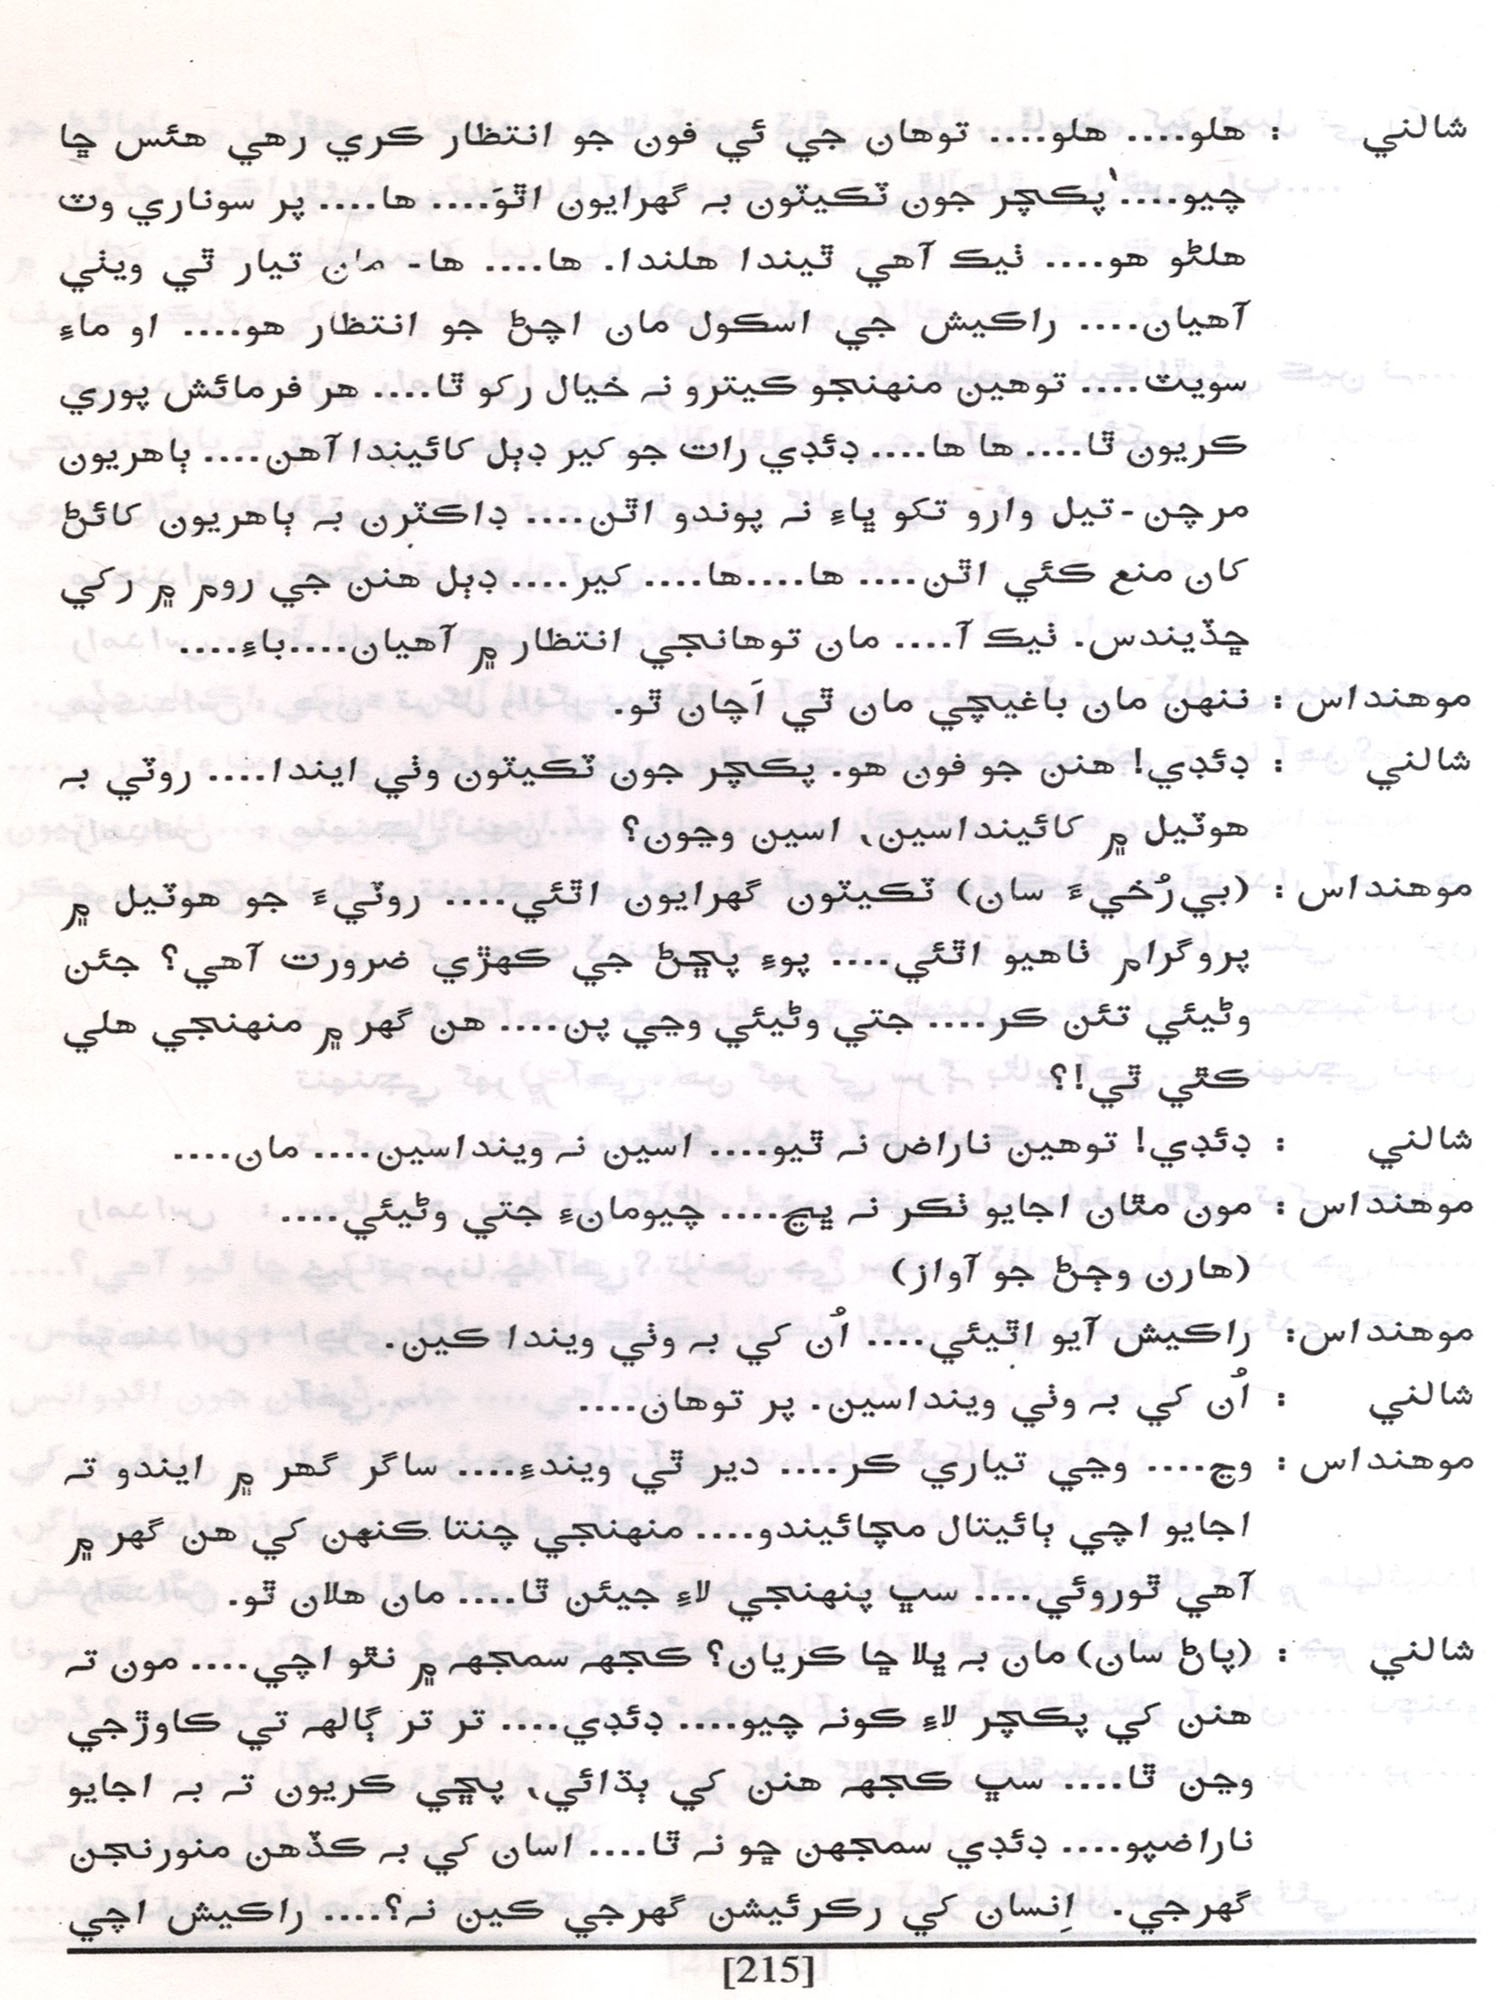 شالني : هلو.... هلو.... توهان جي ئي فون جو انتظار ڪري رهي هئس ڇا
چيو....‘پڪچر جون ٽڪيٽون بہ گهرايون اٿوَ.... ها.... پر سوناري وٽ
هلڻو هو.... ٺيڪ آهي ٿيندا هلندا. ها.... ها- مان تيار ٿي ويٺي
آهيان.... راڪيش جي اسڪول مان اچڻ جو انتظار هو.... او ماءِ
سويٽ.... توهين منهنجو ڪيترو نہ خيال رکو ٿا.... هر فرمائش پوري
ڪريون ٿا.... ها ها.... ڊئڊي رات جو کير ڊٻل کائيندا آهن.... ٻاهريون
مرچن-تيل وارو تکو ڀاءِ نہ پوندو اٿن.... ڊاڪٽرن بہ ٻاهريون کائڻ
کان منع ڪئي اٿن.... ها....ها.... کير.... ڊٻل هنن جي روم ۾ رکي
ڇڏيندس. ٺيڪ آ.... مان توهانجي انتظار ۾ آهيان....باءِ....
موهنداس : ننهن مان باغيچي مان ٿي اَچان ٿو.
شالني : ڊئڊي! هنن جو فون هو. پڪچر جون ٽڪيٽون وٺي ايندا.... روٽي بہ
هوٽيل ۾ کائينداسين، اسين وڃون؟
موهنداس : (بي رُخيءَ سان) ٽڪيٽون گهرايون اٿئي.... روٽيءَ جو هوٽيل ۾
پروگرام ٺاهيو اٿئي.... پوءِ پڇڻ جي ڪهڙي ضرورت آهي؟ جئن
وڻيئي تئن ڪر.... جتي وڻيئي وڃي پن.... هن گهر ۾ منهنجي هلي
ڪٿي ٿي!؟
شالني : ڊئڊي! توهين ناراض نہ ٿيو.... اسين نہ وينداسين.... مان....
موهنداس : مون مٿان اجايو ٺڪر نہ ڀڃ.... چيومانءِ جتي وڻيئي....
(هارن وڄڻ جو آواز)
موهنداس: راڪيش آيو اٿيئي.... اُن کي بہ وٺي ويندا ڪين.
شالني : اُن کي بہ وٺي وينداسين. پر توهان....
موهنداس : وڃ.... وڃي تياري ڪر.... دير ٿي ويندءِ.... ساگر گهر ۾ ايندو تہ
اجايو اچي ٻائيتال مچائيندو.... منهنجي چنتا ڪنهن کي هن گهر ۾
آهي ٿوروئي.... سڀ پنهنجي لاءِ جيئن ٿا.... مان هلان ٿو.
شالني : (پاڻ سان) مان بہ ڀلا ڇا ڪريان؟ ڪجهہ سمجهہ ۾ نٿو اچي.... مون تہ
هنن کي پڪچر لاءِ ڪونہ چيو.... ڊئڊي.... تر تر ڳالهہ تي ڪاوڙجي
وڃن ٿا.... سڀ ڪجهہ هنن کي ٻڌائي، پڇي ڪريون تہ بہ اجايو
ناراضپو.... ڊئڊي سمجهن ڇو نہ ٿا.... اسان کي بہ ڪڏهن منورنجن
گهرجي. اِنسان کي رڪرئيشن گهرجي ڪين نہ؟.... راڪيش اچي
[215]